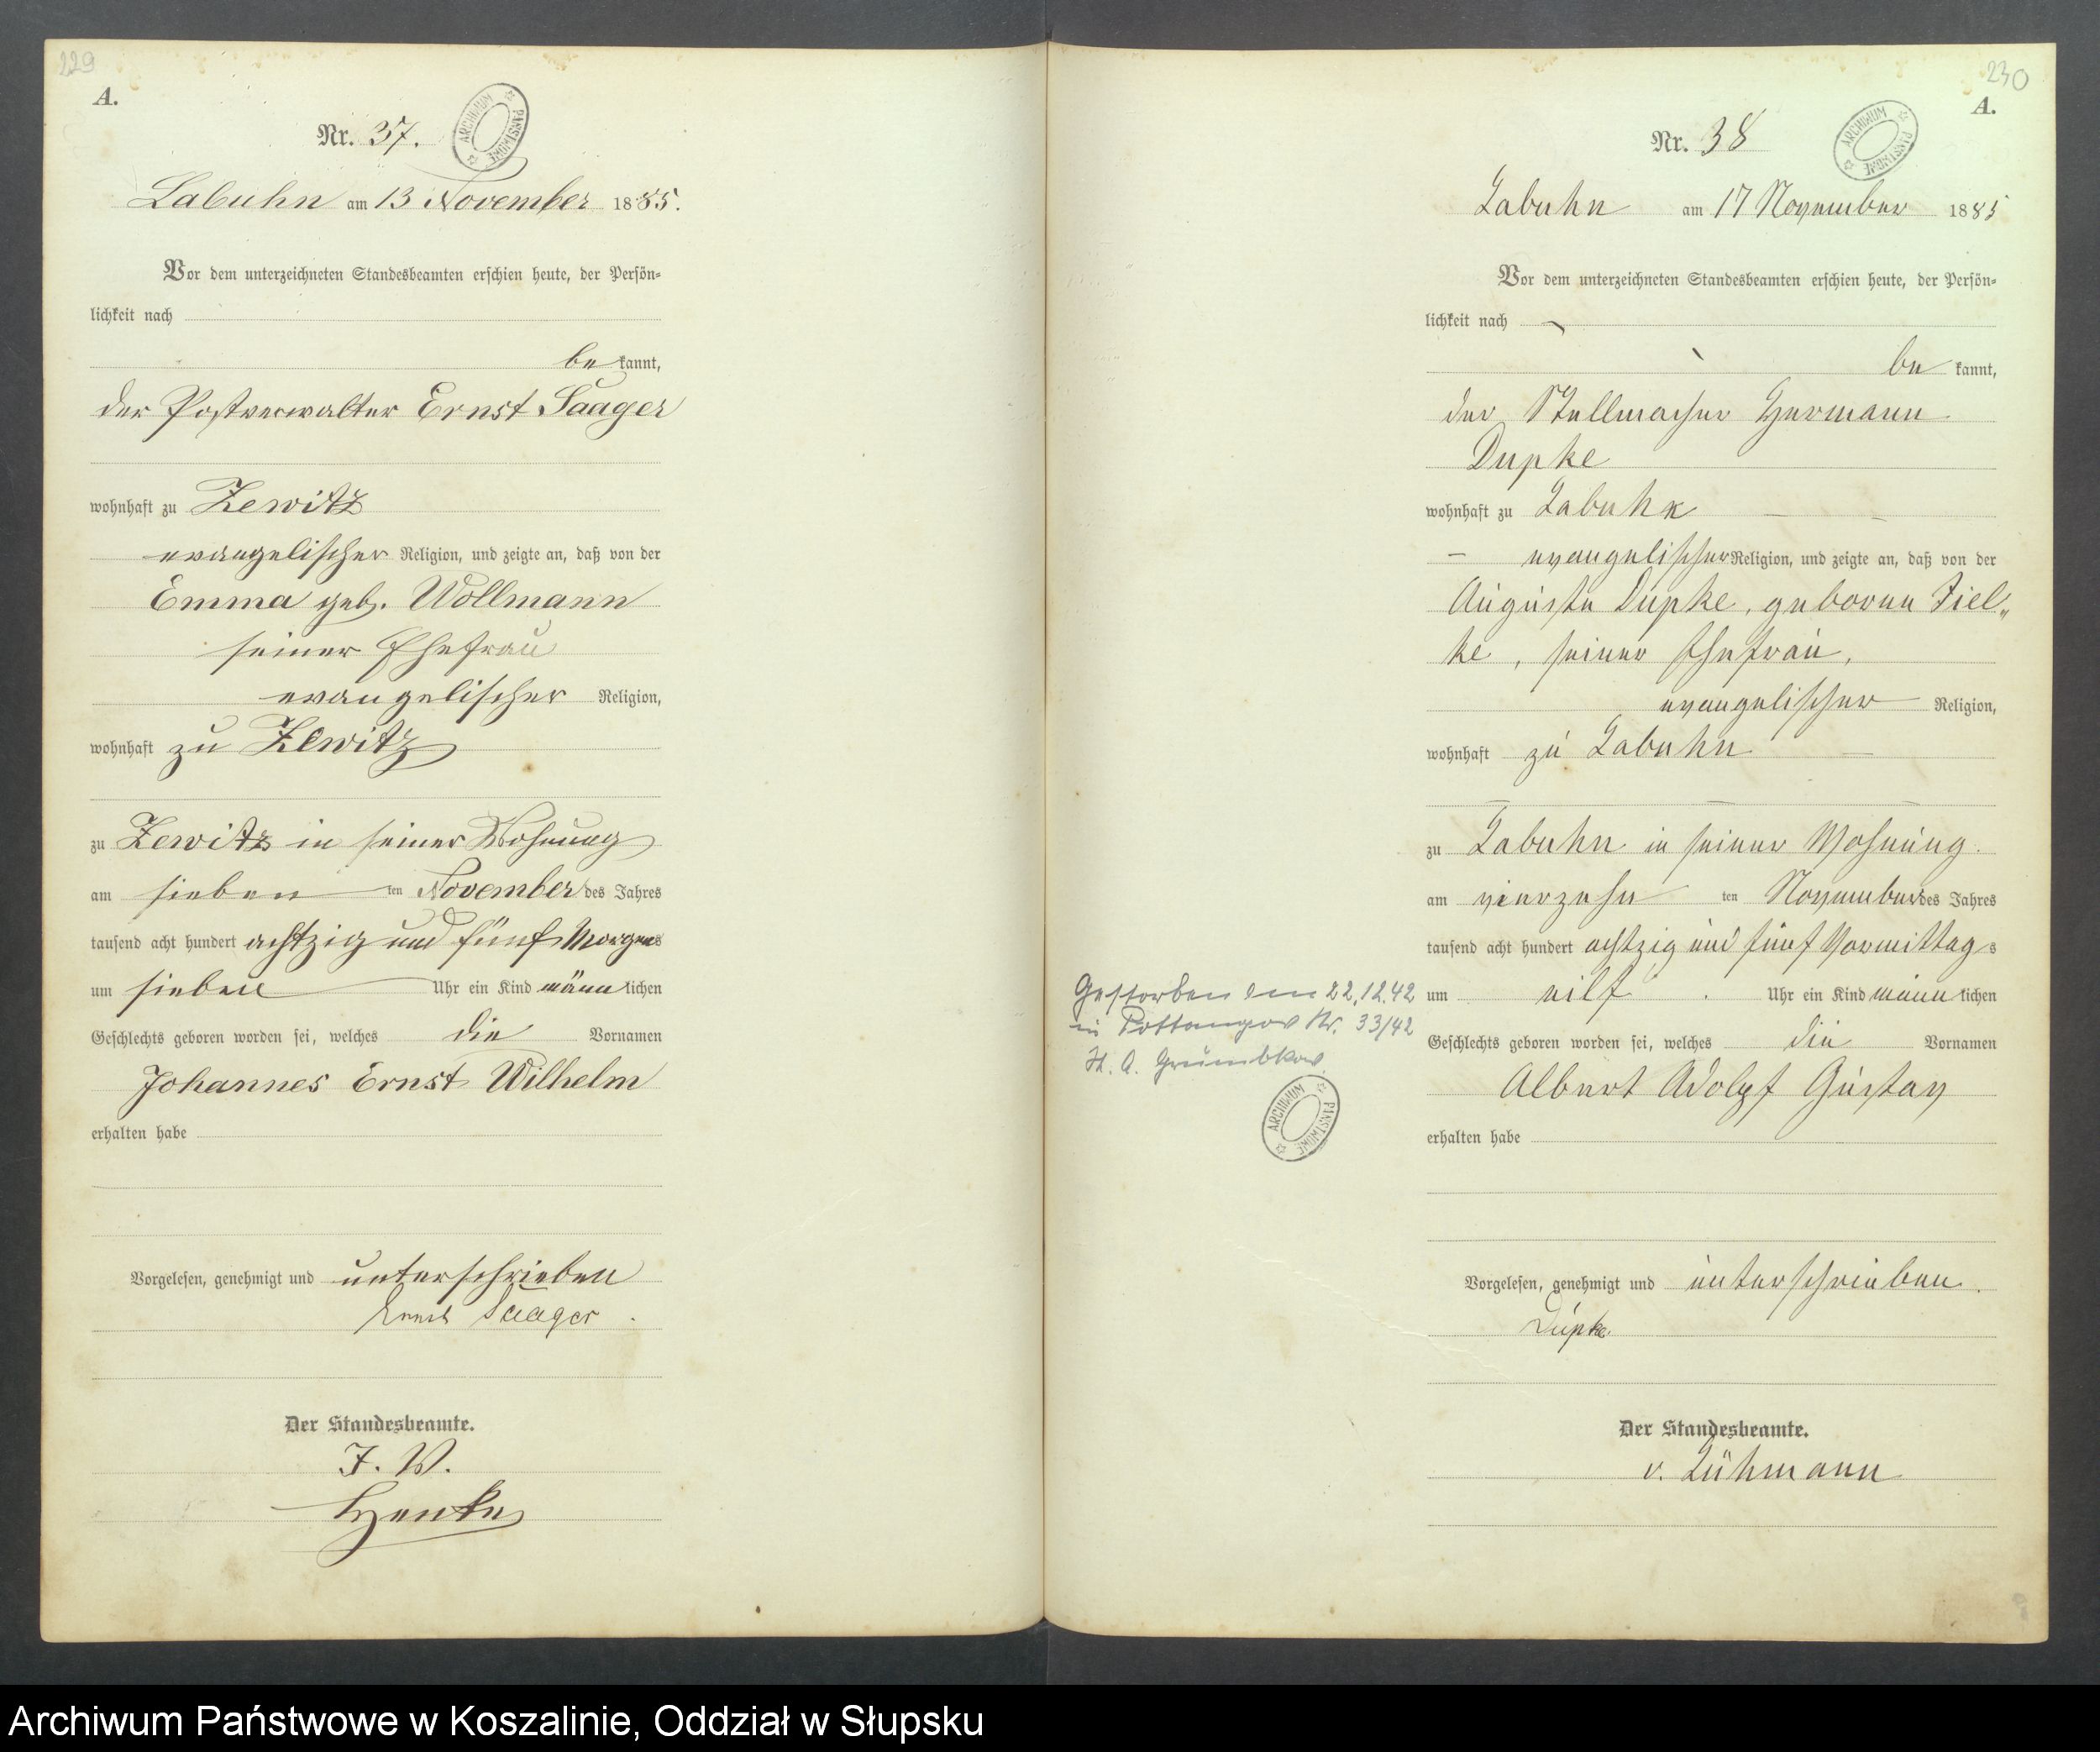 229
A.
Nr. 37.
ARCHIWUM PAŃSTWOWE
Labuhn am 13 November 1885.
Vor dem unterzeichneten Standesbeamten erschien heute, der Persön-
lichkeit nach
be kannt,
der Postverwalter Ernst Saager
wohnhaft zu Zewitz
evangelischer Religion, und zeigte an, daß von der
Emma geb. Wollmann
seiner Ehefrau
evangelischer Religion,
wohnhaft zu Zewitz
zu Zewitz in seiner Wohnung
am sieben ten November des Jahres
tausend acht hundert achtzig und fünf Morgens
um sieben Uhr ein Kind männlichen
Geschlechts geboren worden sei, welches die Vornamen
Johannes Ernst Wilhelm
erhalten habe
Vorgelesen, genehmigt und unterschrieben
Ernst Saager.
Der Standesbeamte.
J. V.
Henke
230
A.
Nr. 38
ARCHIWUM PAŃSTWOWE
Labuhn am 17 November 1885
Vor dem unterzeichneten Standesbeamten erschien heute, der Persön-
lichkeit nach
be kannt,
der Stellmacher Hermann
Dupke
wohnhaft zu Labuhn
evangelischer Religion, und zeigte an, daß von der
Auguste Dupke, geborene Fiel„
ke, seiner Ehefrau,
evangelischer Religion,
wohnhaft zu Labuhn
zu Labuhn in seiner Wohnung.
am vierzehn ten November des Jahres
tausend acht hundert achtzig und fünf Vormittags
um eilf Uhr ein Kind männlichen
Geschlechts geboren worden sei, welches die Vornamen
Albert Adolpf Gustav
erhalten habe
Gestorben am 22.12.42
in Pottangow Nr. 33/42
St. A. Grumbkow.
ARCHIWUM PAŃSTWOWE
Vorgelesen, genehmigt und unterschrieben.
Dupke.
Der Standesbeamte.
v. Lühmann
Archiwum Państwowe w Koszalinie, Oddział w Słupsku